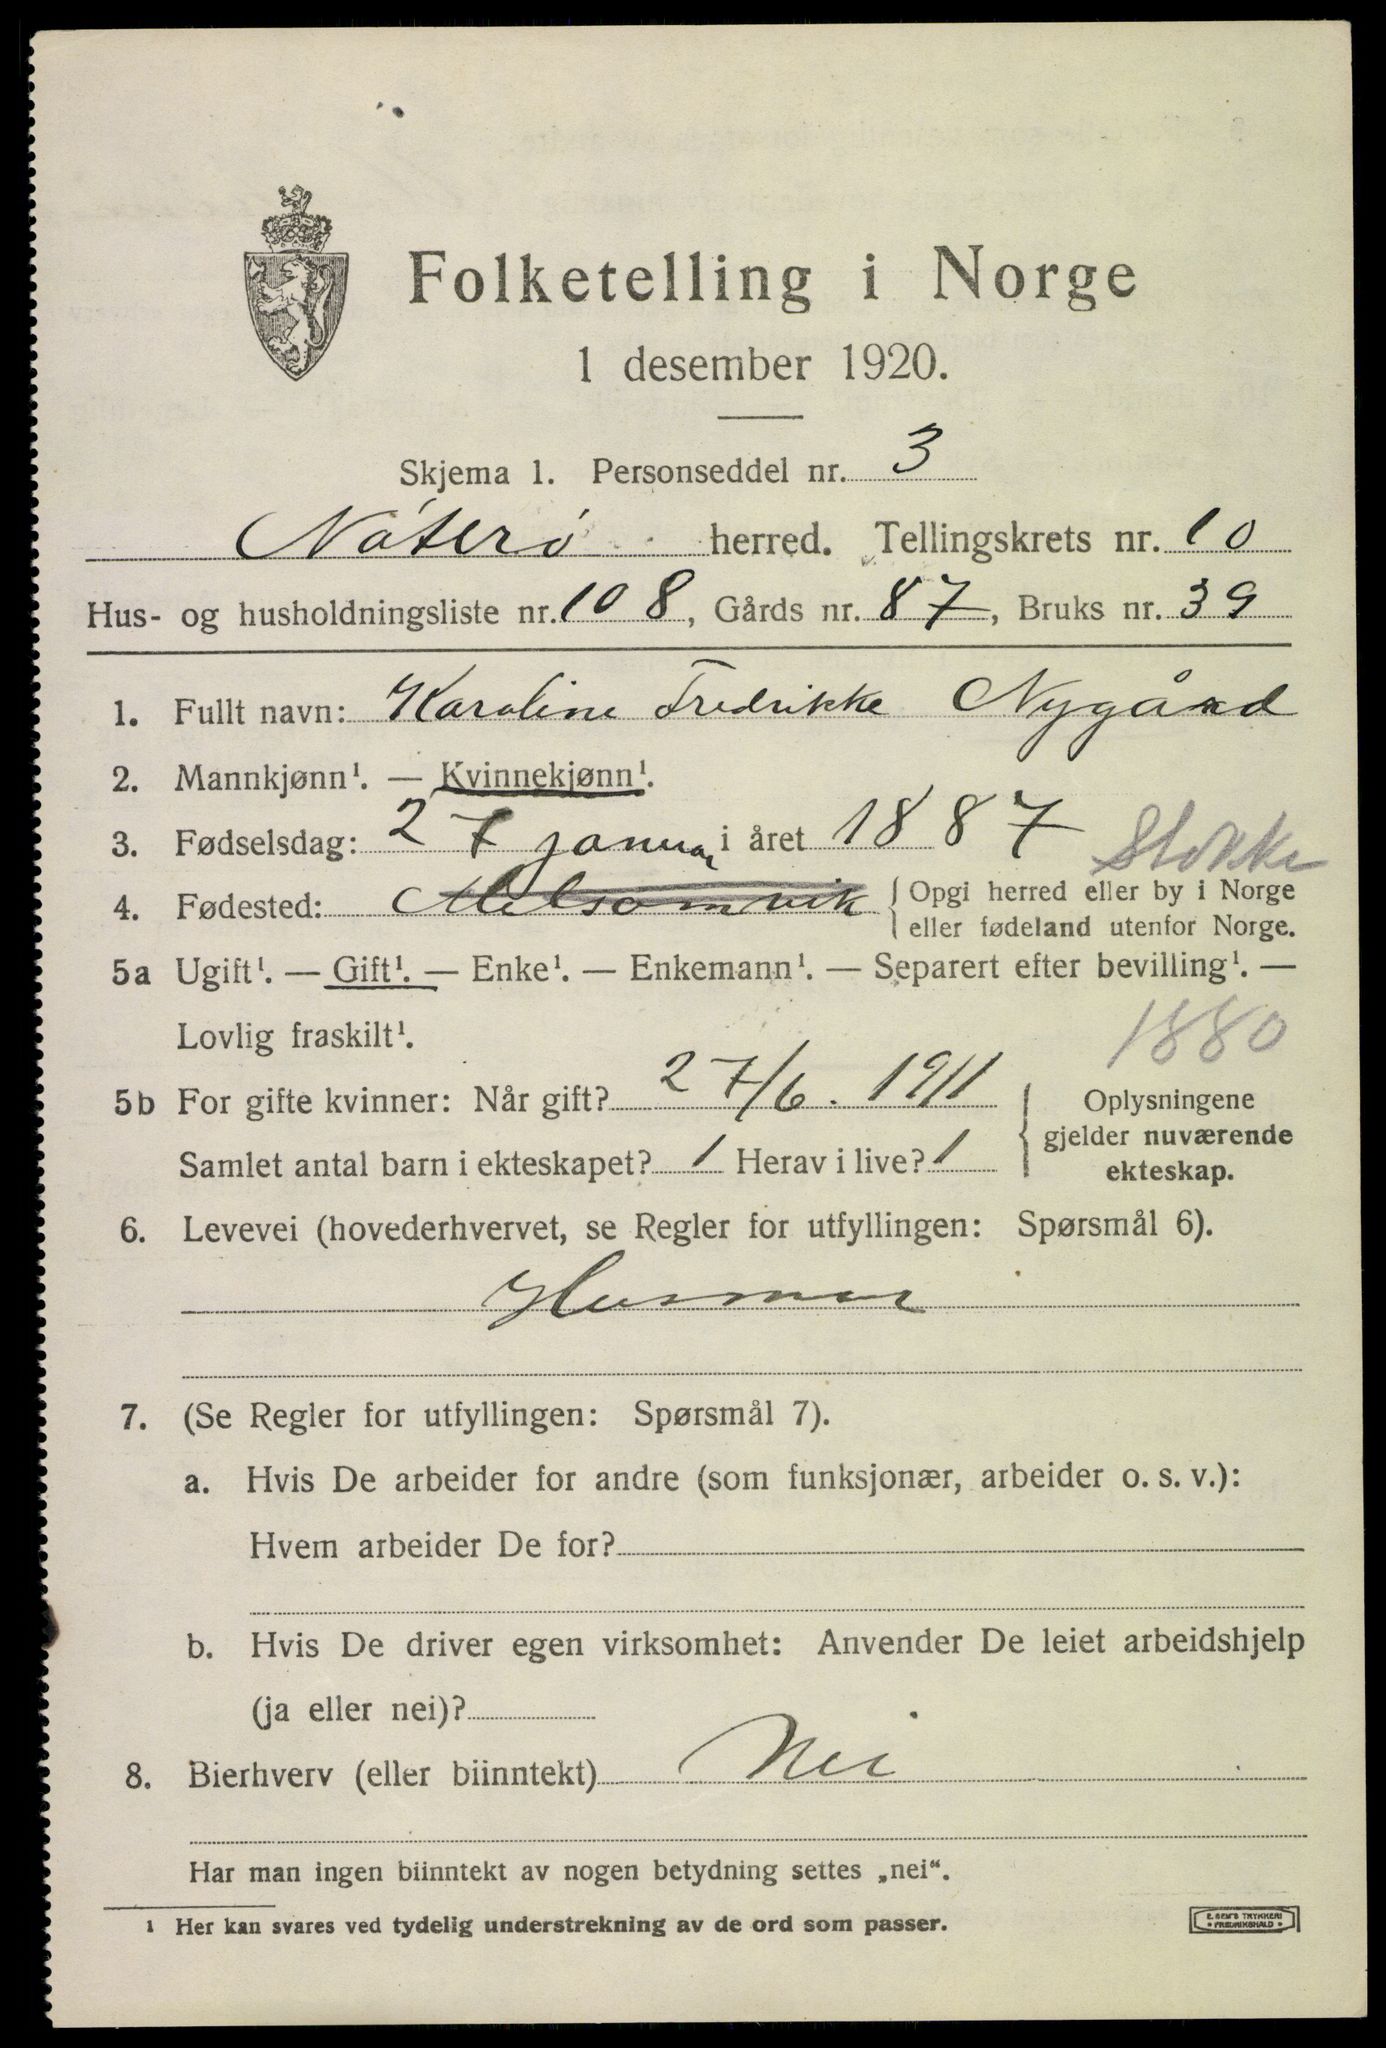 Folketelling i Norge
1 desember 1920.
Skjema 1. Personseddel nr. 3
Nøterø herred. Tellingskrets nr. 10
Hus- og husholdningsliste nr. 108, Gårds nr. 87, Bruks nr. 39
1. Fullt navn: Karoline Fredrikke Nygård
2. Mannkjønn¹. — Kvinnekjønn¹.
3. Fødselsdag: 27 januar i året 1887
Stokke
4. Fødested: Melsomvik { Opgi herred eller by i Norge
eller fødeland utenfor Norge.
5a Ugift¹. — Gift¹. — Enke¹. — Enkemann¹. — Separert efter bevilling¹. —
Lovlig fraskilt¹.
1880
5b For gifte kvinner: Når gift? 27/6. 1911
Samlet antal barn i ekteskapet? 1 Herav i live? 1
Oplysningene
gjelder nuværende
ekteskap.
6. Levevei (hovederhvervet, se Regler for utfyllingen: Spørsmål 6).
Husmor
7. (Se Regler for utfyllingen: Spørsmål 7).
a. Hvis De arbeider for andre (som funksjonær, arbeider o. s. v.):
Hvem arbeider De for?
b. Hvis De driver egen virksomhet: Anvender De leiet arbeidshjelp
(ja eller nei)?
8. Bierhverv (eller biinntekt) Nei
Har man ingen biinntekt av nogen betydning settes „nei“.
¹ Her kan svares ved tydelig understrekning av de ord som passer.
E. SEM'S TRYKKERI
• FREDRIKSHALD •